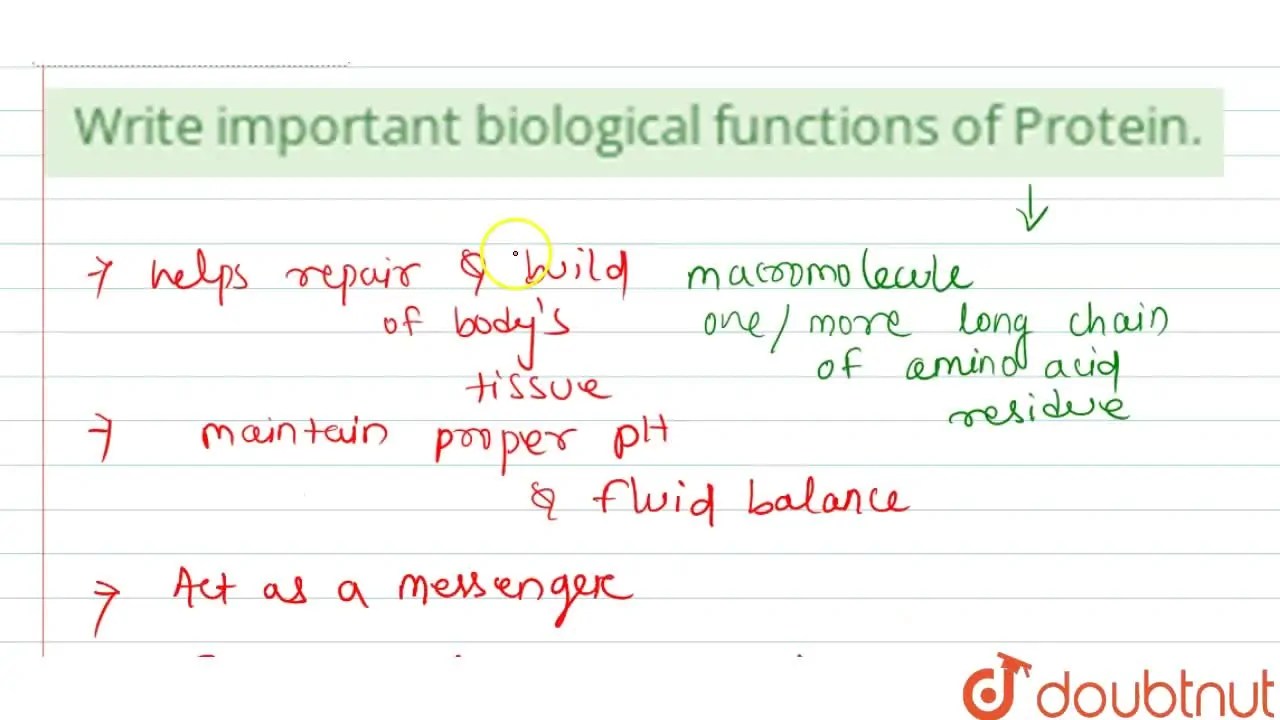 Write important biological functions of Protein.
↓
→ helps repair & build
of body's
tissue
macromolecule
one/more long chain
of amino acid
residue
→ maintain proper pH
& fluid balance
→ Act as a messenger
doubtnut